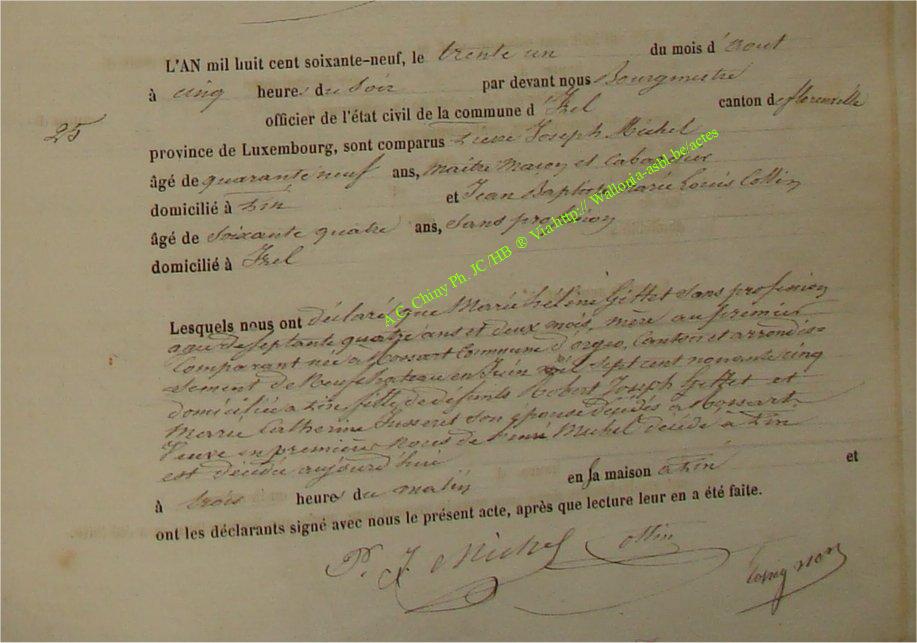 L'AN mil huit cent soixante-neuf, le trente un du mois d'aout
à cinq heures du Soir par devant nous Bourgmestre
officier de l'état civil de la commune d'Izel canton de florenville
25
province de Luxembourg, sont comparus Pierre Joseph Michel
âgé de quarante neuf ans, maitre macon et Cabaretier
domicilié à Pin et Jean Baptiste Marie Louis Collin
âgé de soixante quatre ans, sans profession
domicilié à Izel
A.G. Chiny Ph. JC /HB ® Via http:// Wallonia-asbl.be/actes
Lesquels nous ont déclaré que Marie hélène Gillet sans profession
agée de septante quatre ans et deux mois, mère au premier
Comparant née a Mossart Commune d'orgeo, Canton et arrondis-
sement de Neufchateau en Juin mil sept cent nonante cinq
domiciliée a Pin, fille de defunts Robert Joseph Gillet et
Marie Catherine Son epouse décédés à Mossart
Veuve en première Noces de Michel décédé à Pin
est décédée aujourd'hui
à trois heures du matin en sa maison a Pin et
ont les déclarants signé avec nous le présent acte, après que lecture leur en a été faite.
P. J. Michel Collin